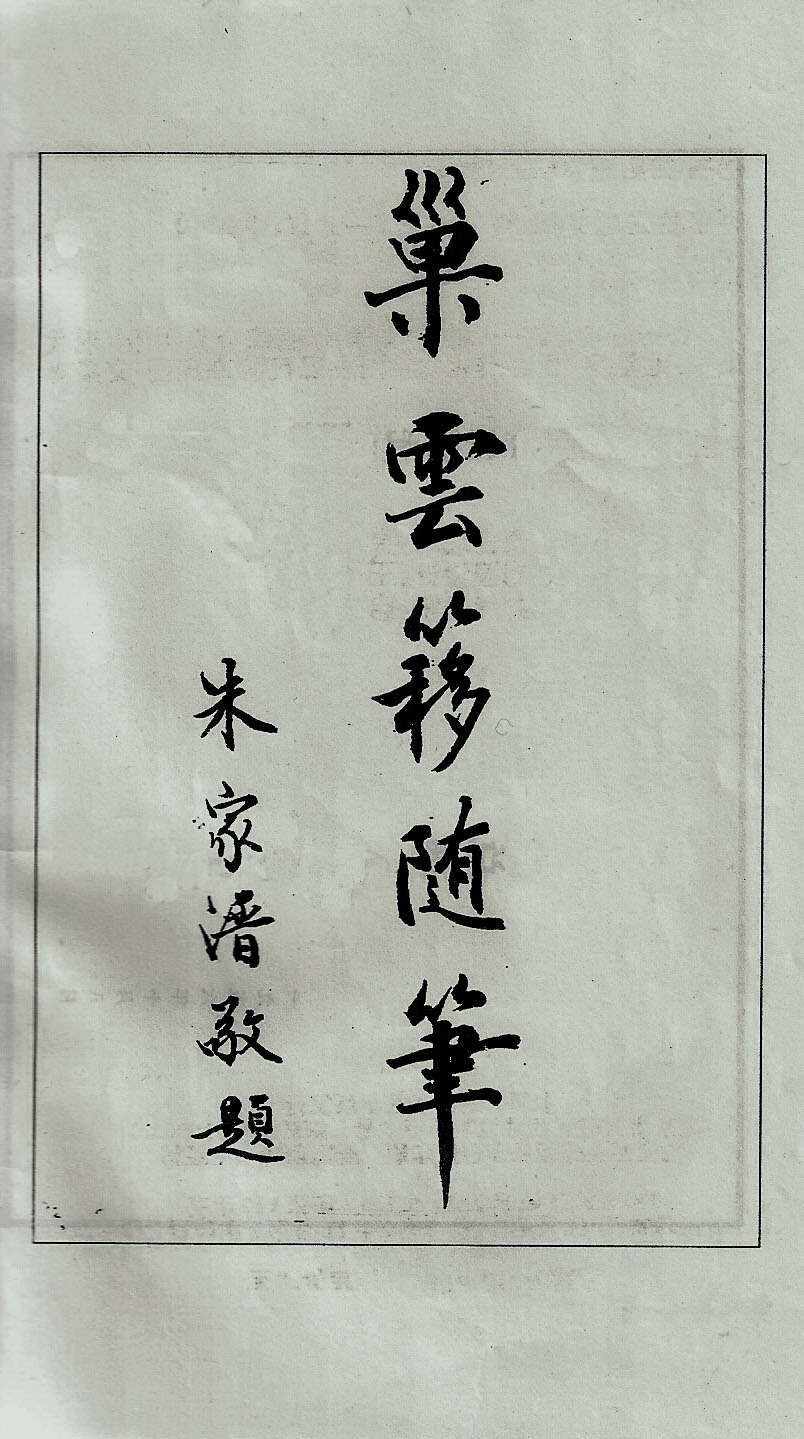 巢雲簃随筆
朱家溍敬題